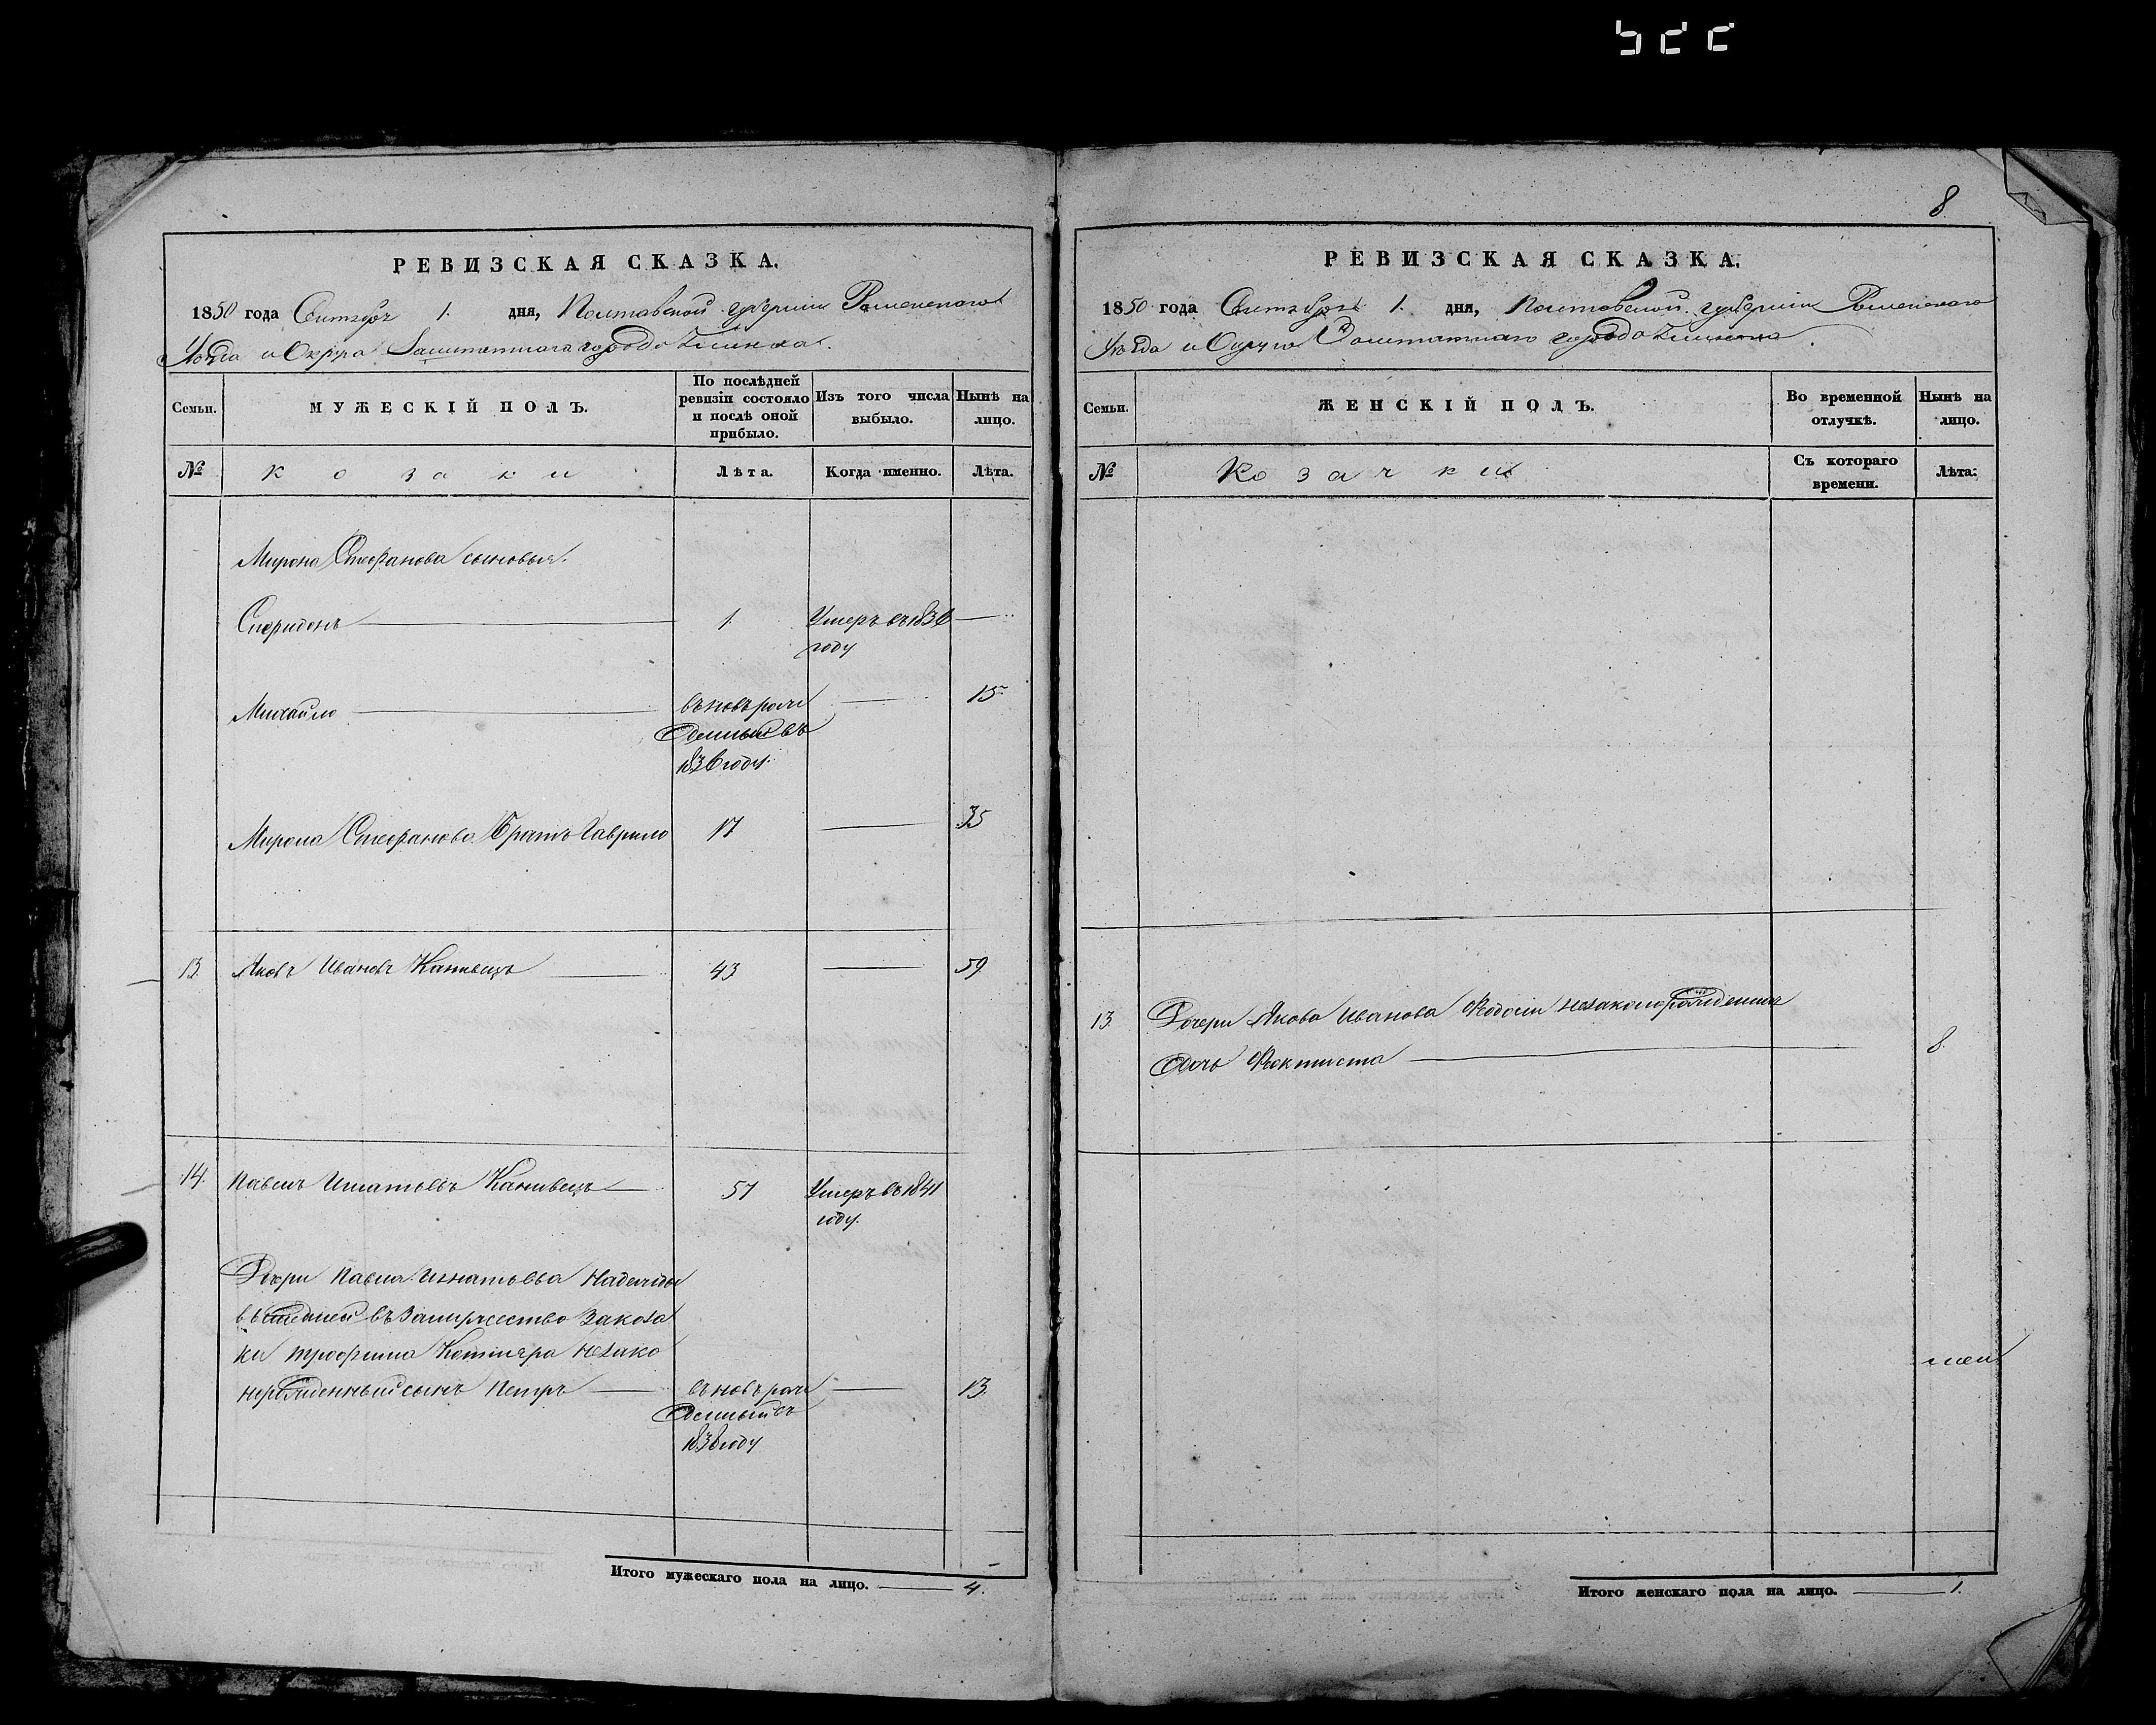 8
РЕВИЗСКАЯ СКАЗКА.
1850 года Сентября 1. дня, Полтавской губерніи Роменскаго
Уѣзда и Округа Заштатнаго города Глинска.
Семьи.
МУЖЕСКІЙ ПОЛЪ.
По послѣдней
ревизіи состояло
и послѣ оной
прибыло.
Изъ того числа
выбыло.
Нынѣ на
лицо.
№
козаки
Лѣта.
Когда именно.
Лѣта.
Мирона Стефанова сыновья.
Спиридонъ 1. Умеръ въ 1836
году
Михайло въновь рож 15
денный въ
1836 году.
Мирона Стефанова Братъ Гаврило 17 35
13. Яковъ Ивановъ Канивецъ 43 59.
14. Павелъ Игнатьевъ Канивецъ 57 Умеръ въ 1841
году.
Дочери Павла Игнатьева Надежды
вышедшей въ Замужество За коза
ка Трофима Котляра Незако
норожденный сынъ Петръ въновь рож 13.
денный въ
1838 году
Итого мужескаго пола на лицо. 4.
РЕВИЗСКАЯ СКАЗКА.
1850 года Сентября 1. дня, Полтавской губерніи Роменскаго
Уѣзда и Округа Заштатнаго города Глинска.
Семьи.
ЖЕНСКІЙ ПОЛЪ.
Во временной
отлучкѣ.
Нынѣ на
лицо.
№
Козачки
Съ котораго
времени.
Лѣта.
13. Дочери Якова Иванова Федосіи незаконорожденная
дочь Фектиста 8.
Итого женскаго пола на лицо. 1.